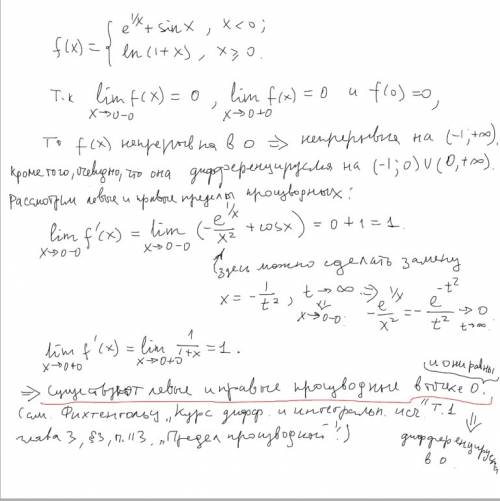 f(x) = { e^{1/x} + sin x , x < 0;
ln(1+x) , x ⩾ 0.
Т.к lim_{x→0-0} f(x) = 0 , lim_{x→0+0} f(x) = 0 и f(0) = 0,
то f(x) непрерывна в 0 => непрерывна на (-1,+∞).
Кроме того, очевидно, что она дифференцируема на (-1;0)∪(0,+∞).
Рассмотрим левые и правые пределы производных:
lim_{x→0-0} f'(x) = lim_{x→0-0} (-e^{1/x}/x² + cos x) = 0 + 1 = 1.
(здесь можно сделать замену
x = -1/t² , t → ∞ => -e^{1/x}/x² = -e^{-t²}/t² → 0
x→0-0. t→∞
lim_{x→0+0} f'(x) = lim_{x→0+0} 1/(1+x) = 1.
и они равны
=> существуют левые и правые производные в точке 0.
(см. Фихтенгольц „Курс дифф. и интегральн. исч“ т.1
глава 3, §3, п. 113, „Предел производной“!)
⇓
дифференцируема
в 0